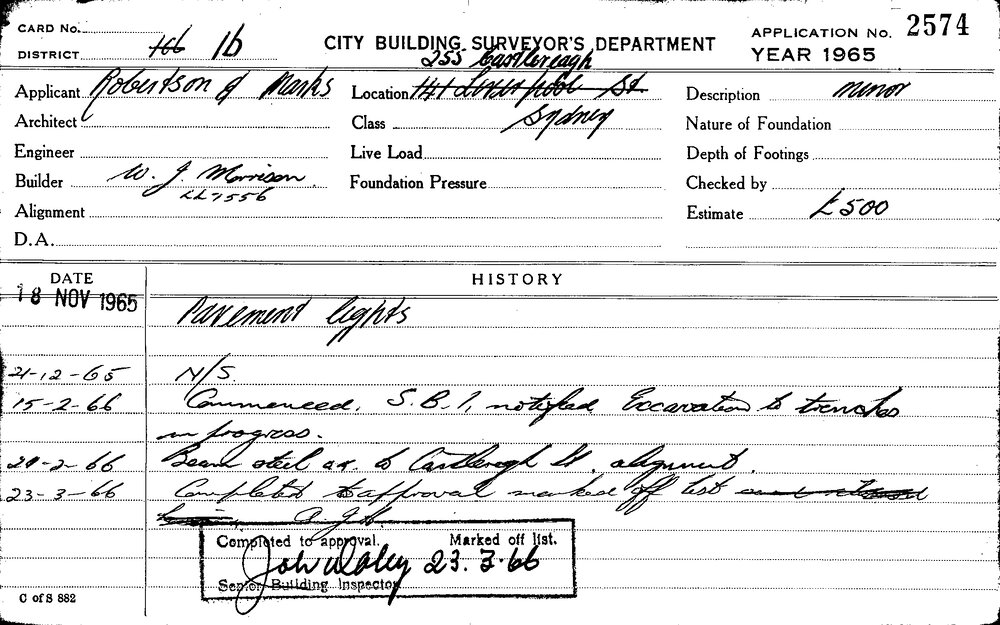 CARD No.
DISTRICT 166 1b
CITY BUILDING SURVEYOR'S DEPARTMENT
APPLICATION No. 2574
YEAR 1965
255 Castlereagh
Applicant Robertson & Marks
Location 141 Liverpool St.
Sydney
Description minor
Architect
Class
Nature of Foundation
Engineer
Live Load
Depth of Footings
Builder W. J. Morrison
LL7556
Foundation Pressure
Checked by
Alignment
Estimate £500
D.A.
DATE
HISTORY
18 NOV 1965 Pavement lights
21-12-65 N/S.
15-2-66 Commenced. S.B.I. notified. Excavation to trenches
in progress.
-2-66 Beam steel to Castlereagh St. alignment.
23-3-66 Completed to approval marked off list
Completed to approval. Marked off list.
John Daley 23.3.66
Senior Building Inspector
C of S 882